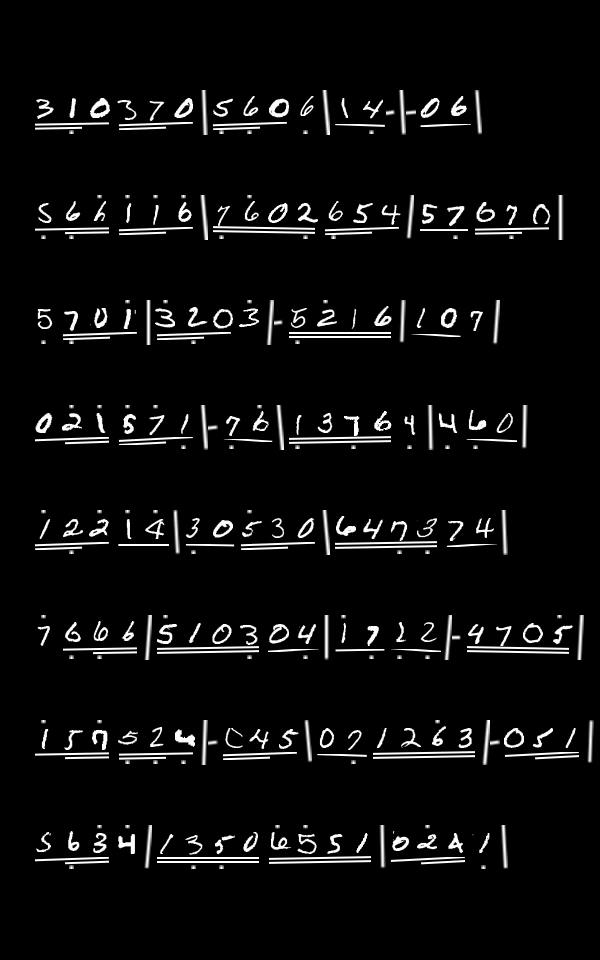 310370|5606|14-|-06|
566116|7602654|57670|
5701|3203|-5216|107|
021571|-76|13764|460|
12214|30530|647374|
7666|510304|1712|-4705|
157524|-C45|071263|-051|
5634|13506551|0241|